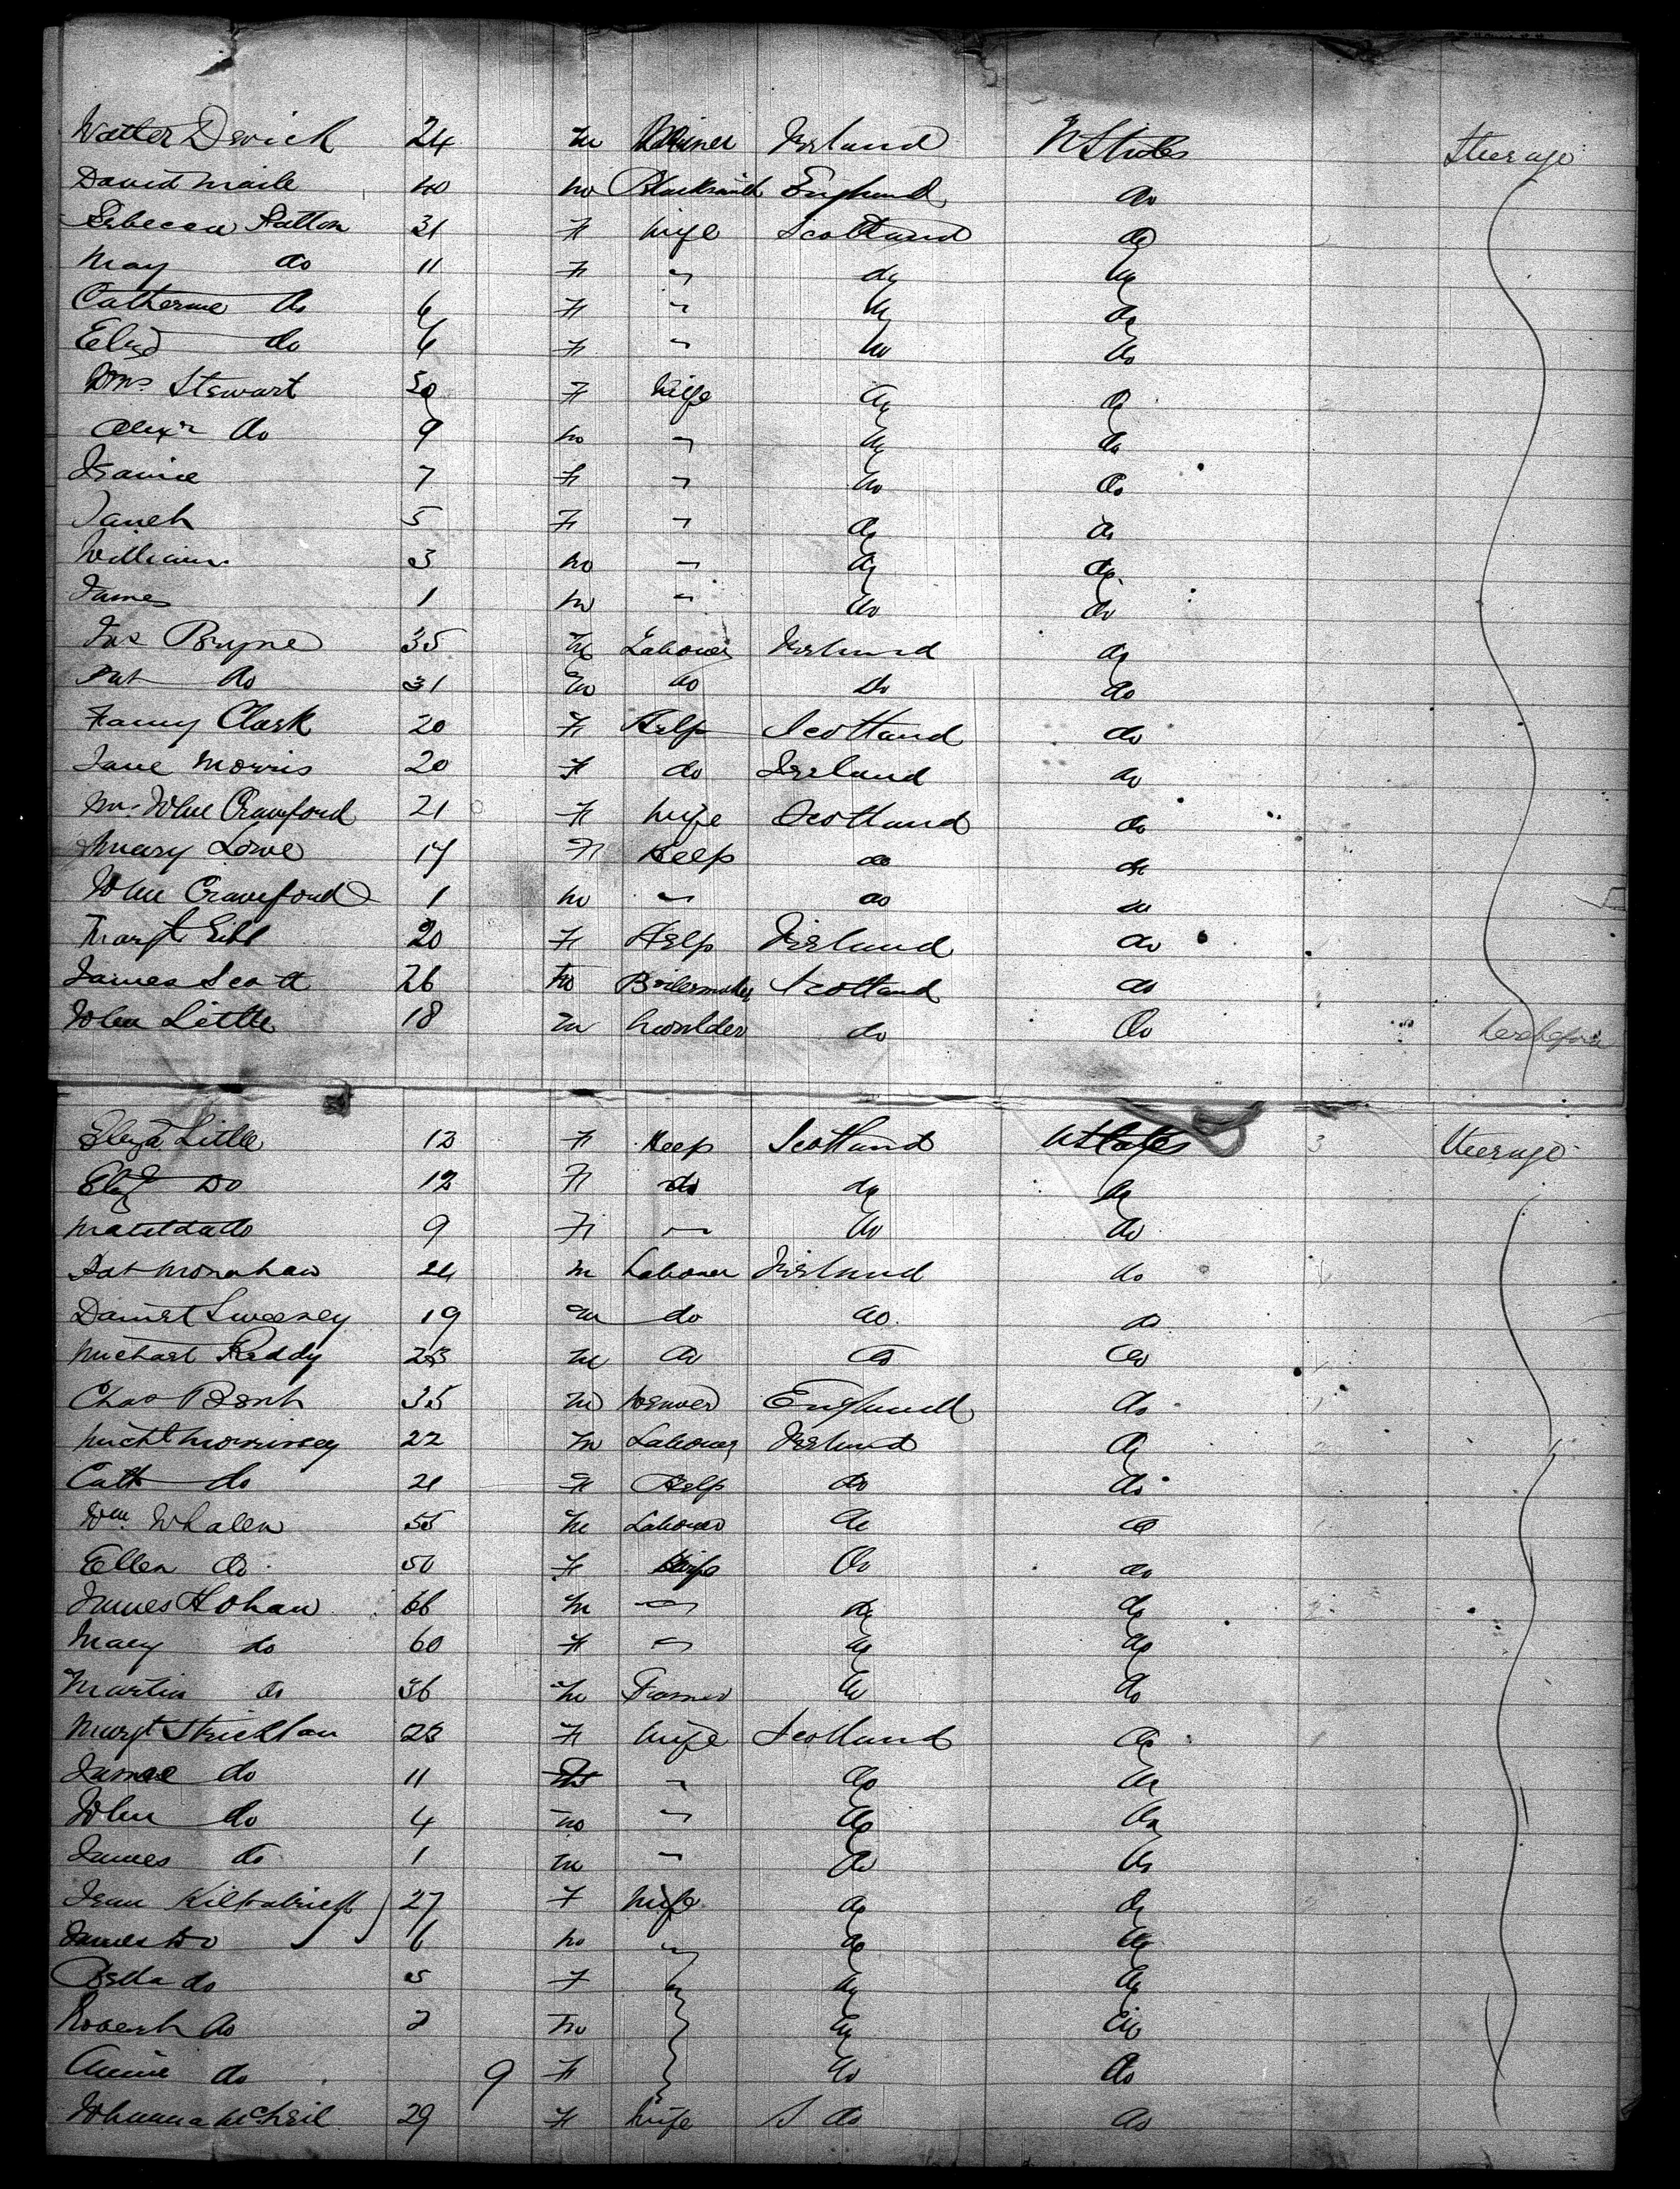 Walter Devick 24 m Ireland U States Steerage
David 40 m Blacksmith England do
Rebecca Patton 31 F Wife Scotland do
May do 11 F " do do
Catherine do 6 F " do do
Eliz do 4 F " do do
Mrs. Stewart 30 F Wife do do
Alexr do 9 m " do do
7 F " do do
Janet 5 F " do do
William 3 m " do do
James 1 m " do do
Jas Bryne 35 m Labourer Ireland do
Pat do 31 m do do do
Fanny Clark 20 F Help Scotland do
Jane Morris 20 F do Ireland do
Mrs. John Crawford 21 F Wife Scotland do
Mary Lowe 17 F Help do do
John Crawford 1 m " do do
Margt 20 F Help Ireland do
James Scott 26 m Boilermaker Scotland do
John Little 18 m Moulder do do
Eliza Little 13 F Help Scotland U States Steerage
Eliz Do 12 F do do do
Matilda do 9 F " do do
Pat Monahan 24 m Labourer Ireland do
Daniel Sweeney 19 m do do do
Michael Reddy 23 m do do do
Chas 35 m Weaver England do
Michl Morrissey 22 m Labourer Ireland do
Cath do 21 F Help do do
Wm. Whalen 55 m Labourer do do
Ellen do 50 F Wife do do
James Hohan 66 m " do do
Mary do 60 F " do do
Martin do 36 m Farmer do do
Margt Stricklan 28 F Wife Scotland do
James do 11 m " do do
John do 4 m " do do
James do 1 m " do do
Jean Kilpatrick 27 F Wife do do
James Do 6 m " do do
Bella do 5 F " do do
Robert do 2 m do do
Annie do 9 F do do
Johanna McNeil 29 F Wife S do do